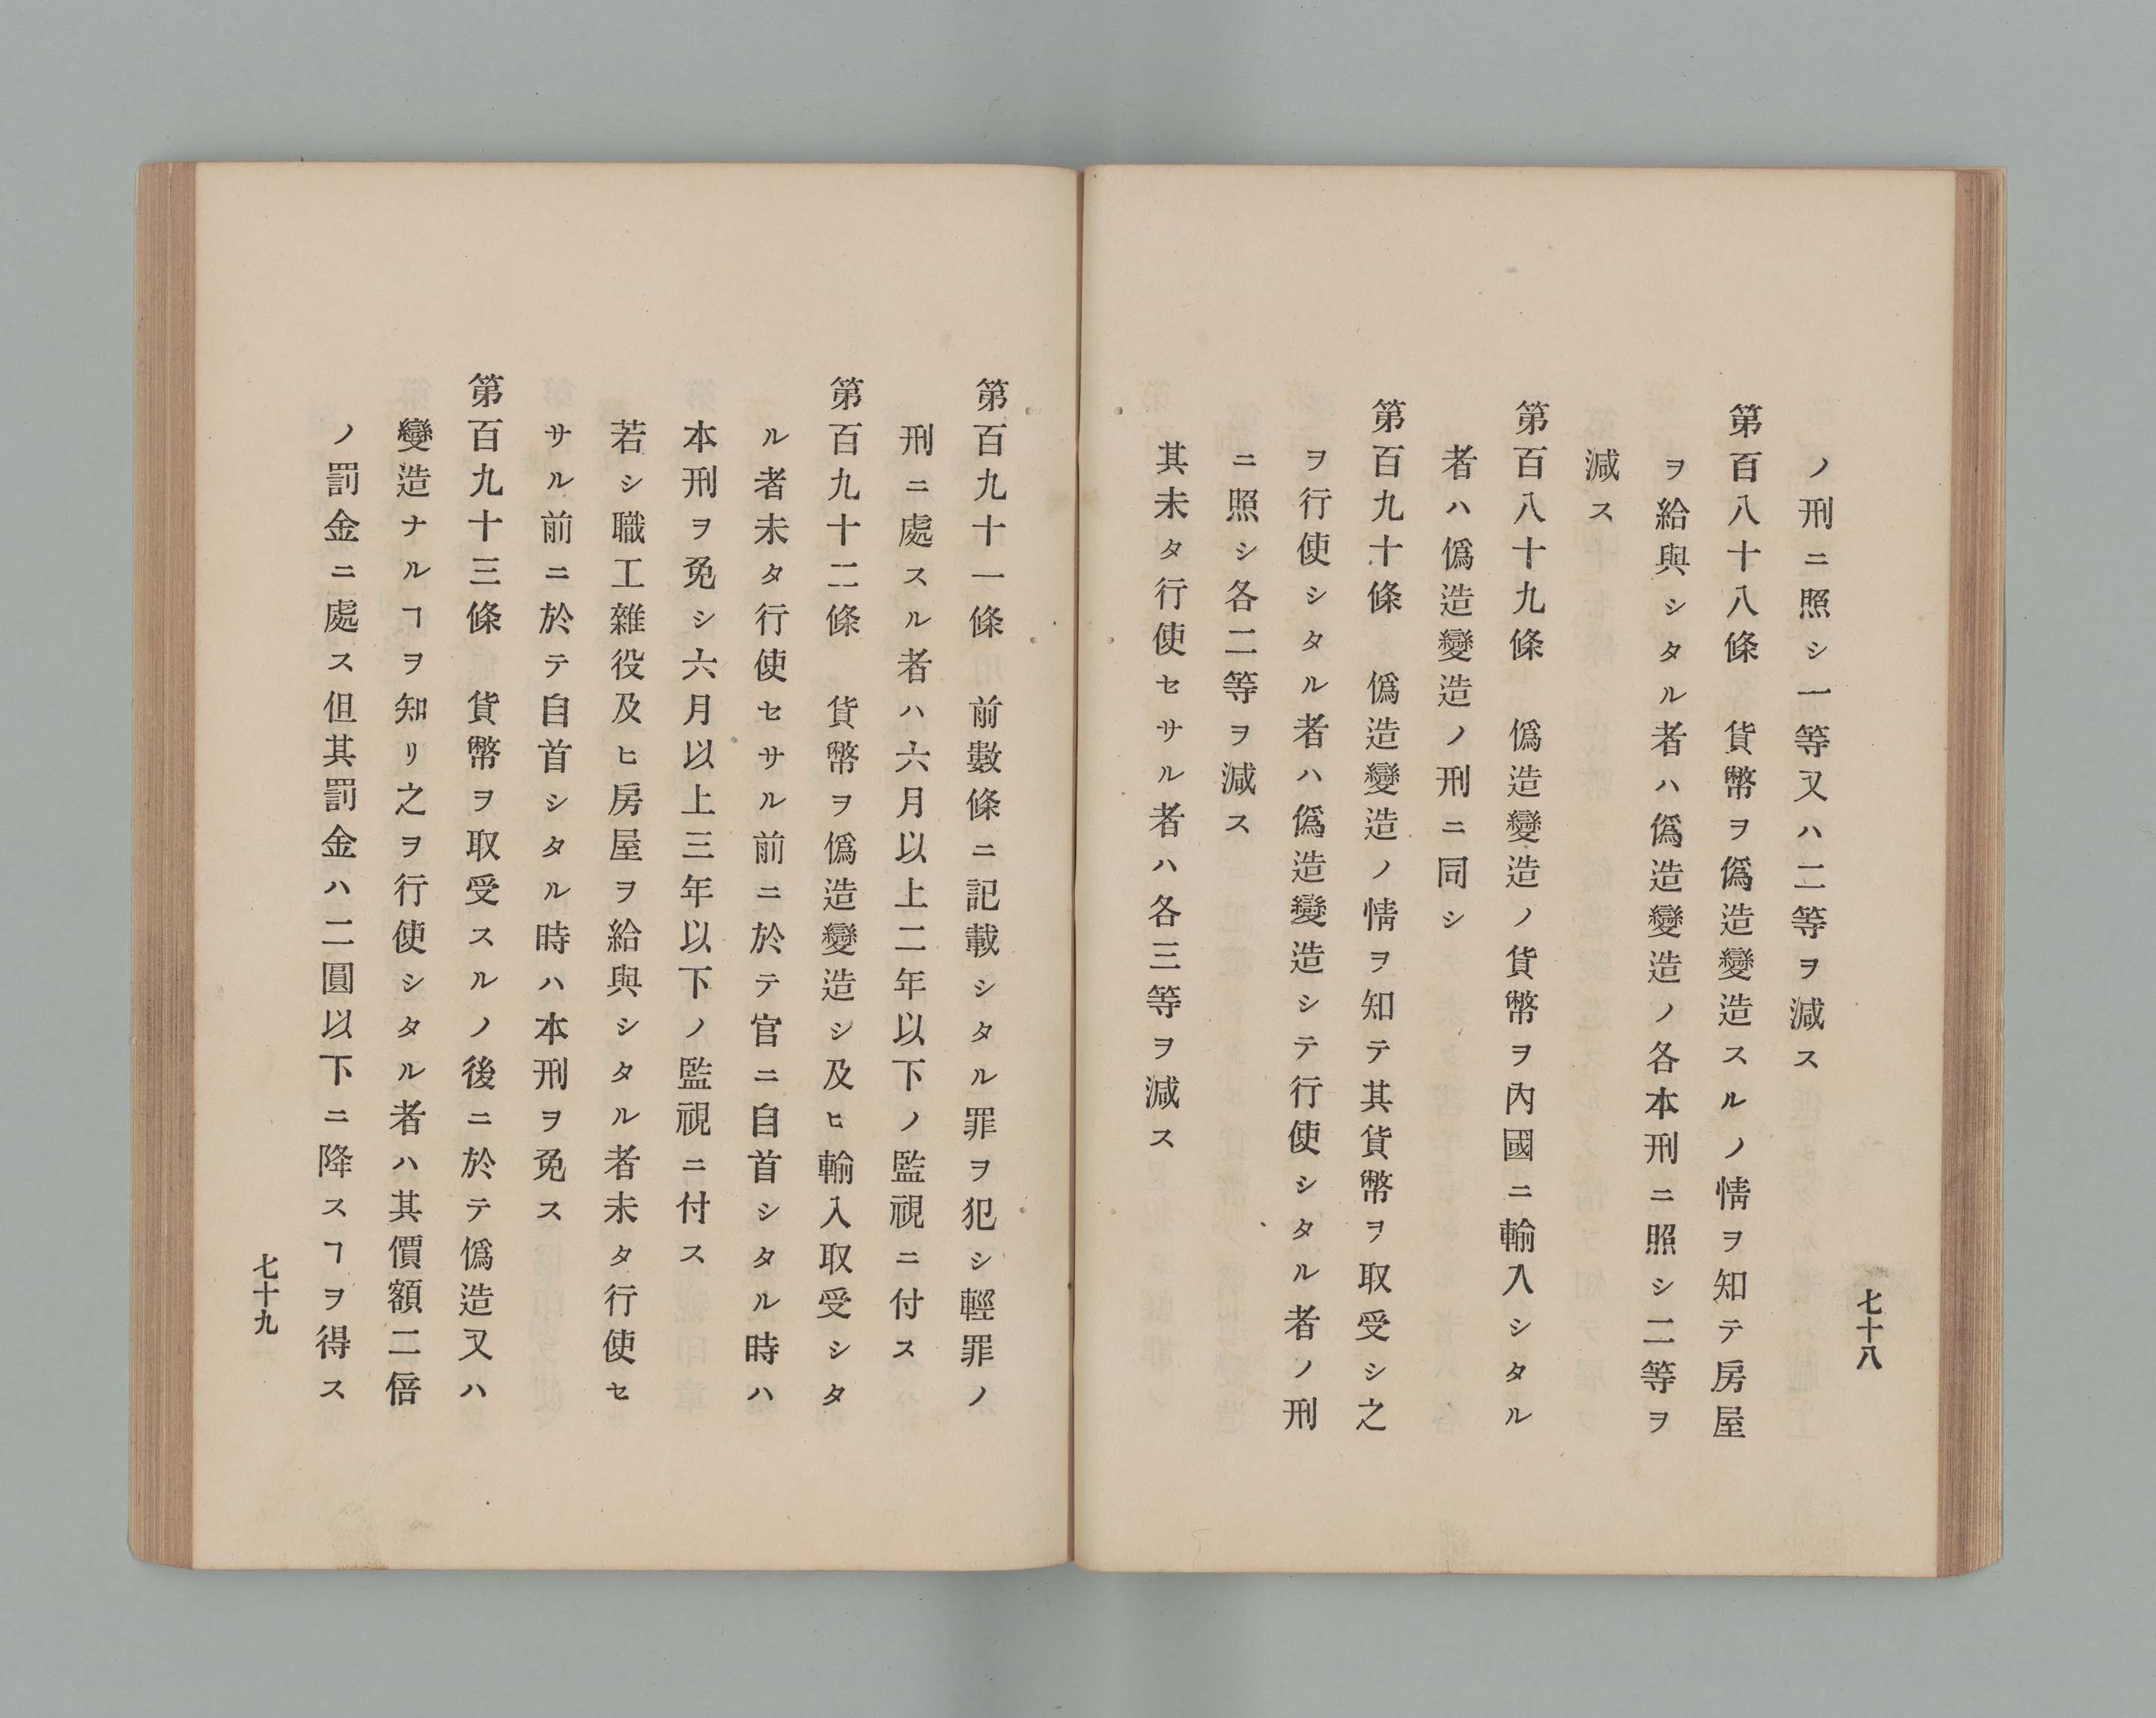 七十八
ノ刑ニ照シ一等又ハ二等ヲ減ス
第百八十八條　貨幣ヲ僞造變造スルノ情ヲ知テ房屋
ヲ給與シタル者ハ僞造變造ノ各本刑ニ照シ二等ヲ
減ス
第百八十九條　僞造變造ノ貨幣ヲ內國ニ輸入シタル
者ハ僞造變造ノ刑ニ同シ
第百九十條　僞造變造ノ情ヲ知テ其貨幣ヲ取受シ之
ヲ行使シタル者ハ僞造變造シテ行使シタル者ノ刑
ニ照シ各二等ヲ減ス
其未タ行使セサル者ハ各三等ヲ減ス
第百九十一條　前數條ニ記載シタル罪ヲ犯シ輕罪ノ
刑ニ處スル者ハ六月以上二年以下ノ監視ニ付ス
第百九十二條　貨幣ヲ僞造變造シ及ヒ輸入取受シタ
ル者未タ行使セサル前ニ於テ官ニ自首シタル時ハ
本刑ヲ免シ六月以上三年以下ノ監視ニ付ス
若シ職工雜役及ヒ房屋ヲ給與シタル者未タ行使セ
サル前ニ於テ自首シタル時ハ本刑ヲ免ス
第百九十三條　貨幣ヲ取受スルノ後ニ於テ僞造又ハ
變造ナルヿヲ知リ之ヲ行使シタル者ハ其價額二倍
ノ罰金ニ處ス但其罰金ハ二圓以下ニ降スヿヲ得ス
七十九